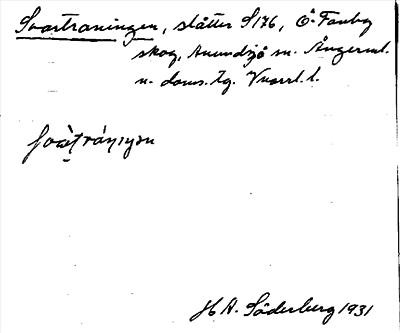 Svartraningen, slåtter S176, Ö. Fanby
skog, Anundsjö sn. Ångerml.
n. doms. tg. Vnorrl. l.
H A. Söderberg 1931